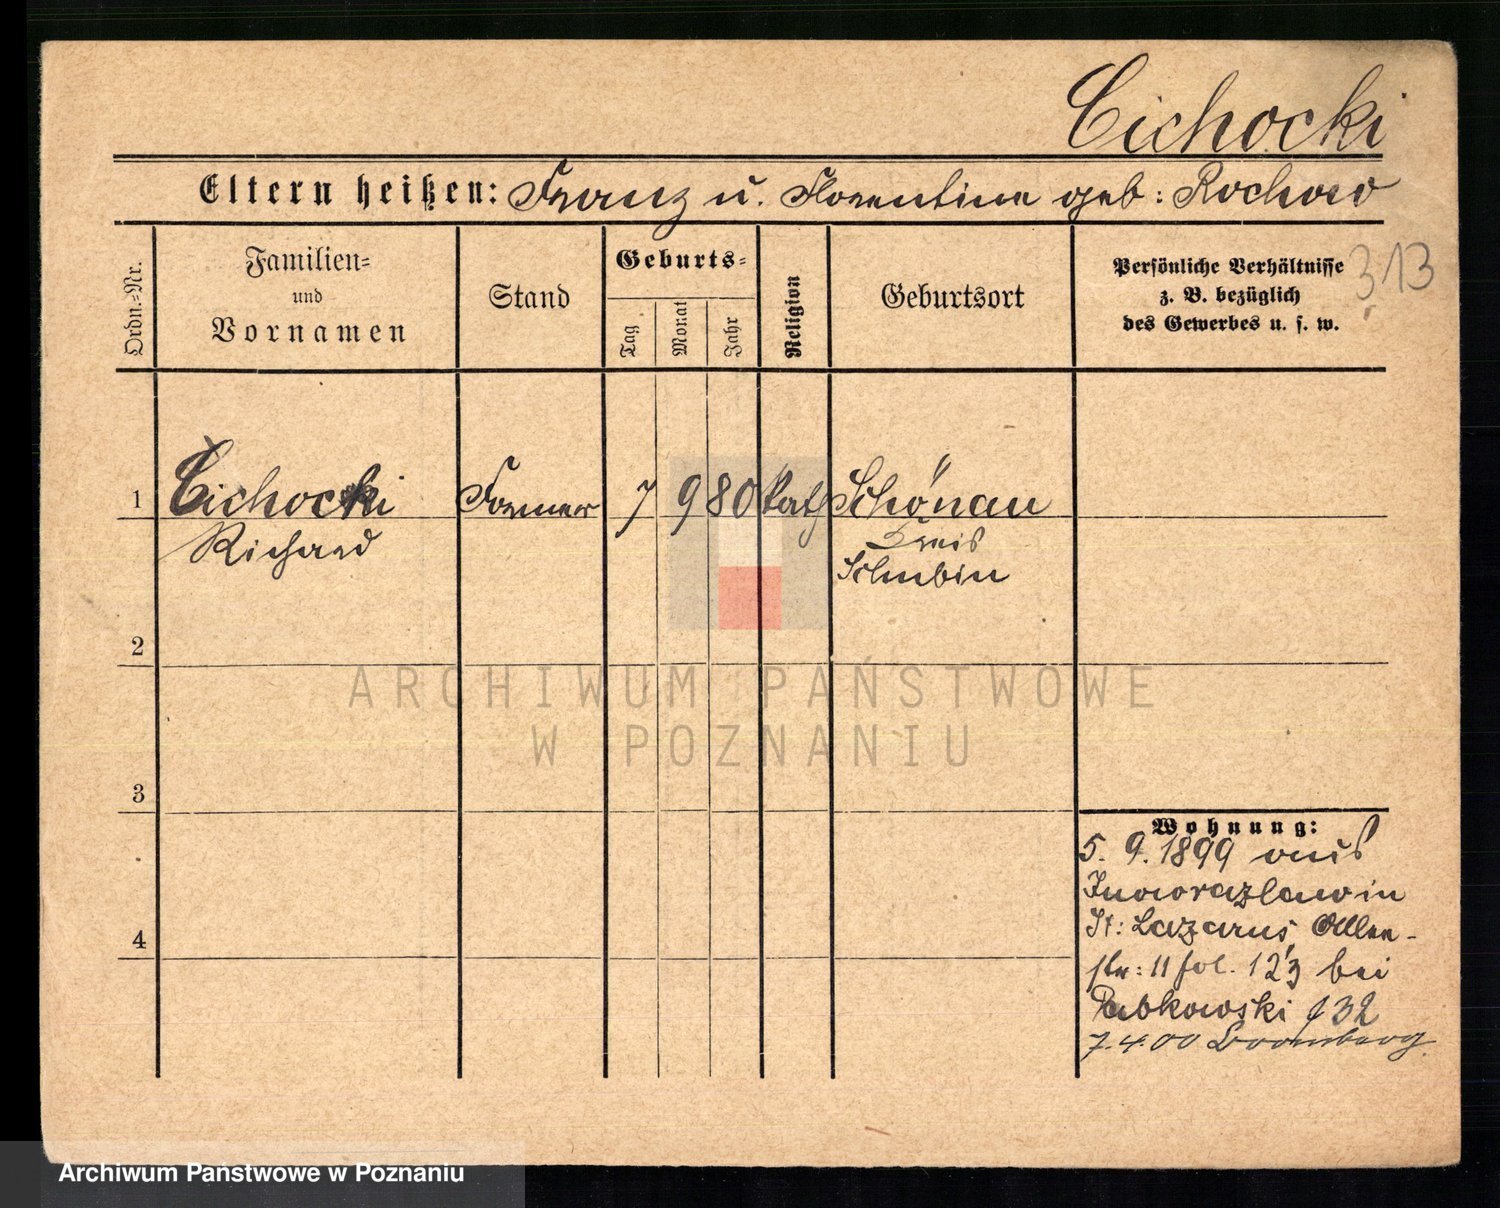 Cichocki
Eltern heißen: Franz u. Florentine geb: Rochow
Ordn.-Nr.
Familien-
und
Vornamen
Stand
Geburts-
Tag
Monat
Jahr
Religion
Geburtsort
Persönliche Verhältnisse
z. B. bezüglich
des Gewerbes u. s. w.
313
1 Cichocki Former 7 9 80 kath Schönau
Richard Kreis
Schubin
2
3
4
Wohnung:
5. 9. 1899 aus
Inowrazlaw in
St: Lazarus, Allee-
str: 11 fol. 123 bei
132
7.4.00 Bromberg
ARCHIWUM PAŃSTWOWE
W POZNANIU
Archiwum Państwowe w Poznaniu